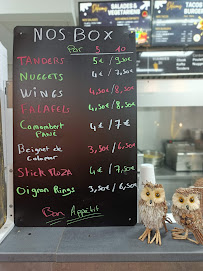 NOS BOX
Par 5 10
TANDERS 5€ / 9,50€
NUGGETS 4€ / 7,50€
WINGS 4,50€ / 8,50€
FALAFELS 4,50€ / 8,50€
Camembert Pané 4€ / 7€
Beignet de Calamar 3,50€ / 6,50€
STICK MOZA 4€ / 7,50€
Oignon Rings 3,50€ / 6,50€
Bon Appétit
SALADES & VEGETARIEN
TACOS BURGER